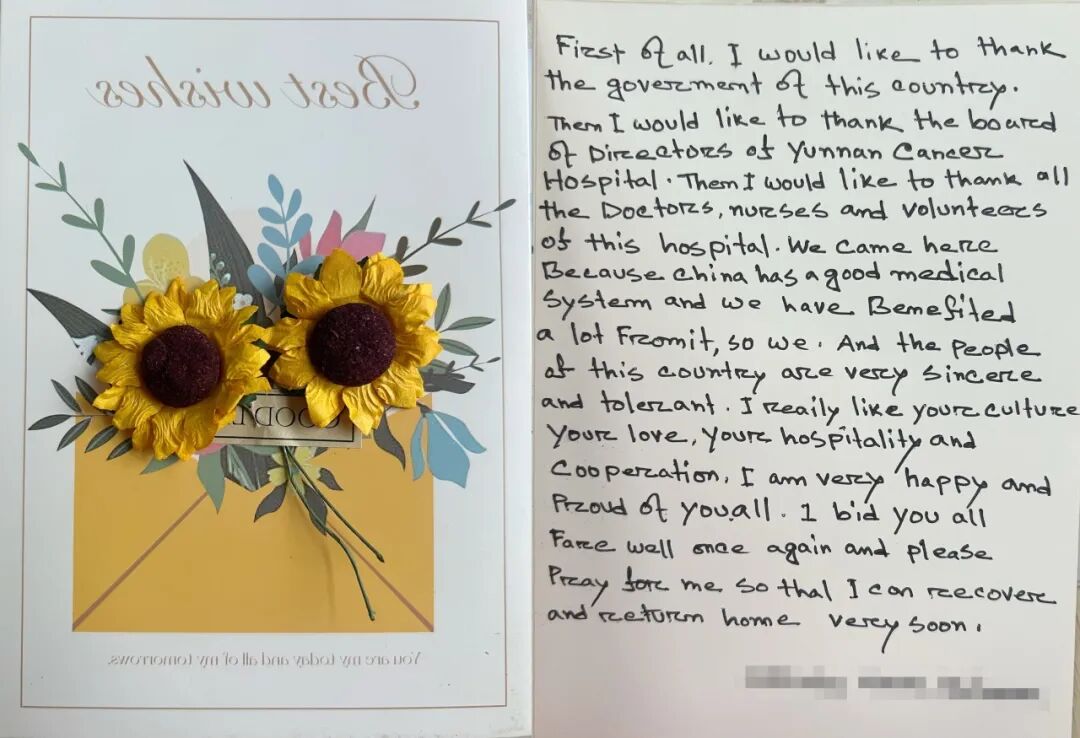 Best wishes
GOOD
You are my today and all of my tomorrows.
First of all. I would like to thank
the goverment of this country.
Then I would like to thank the board
of Directors of Yunnan Cancer
Hospital. Then I would like to thank all
the Doctors, nurses and volunteers
of this hospital. We came here
Because china has a good medical
system and we have Benefited
a lot From it, so we. And the people
of this country are very sincere
and tolerant. I really like your culture
your love, your hospitality and
cooperation. I am very happy and
Proud of you all. I bid you all
Fare well once again and please
Pray for me so that I can recover
and return home very soon.